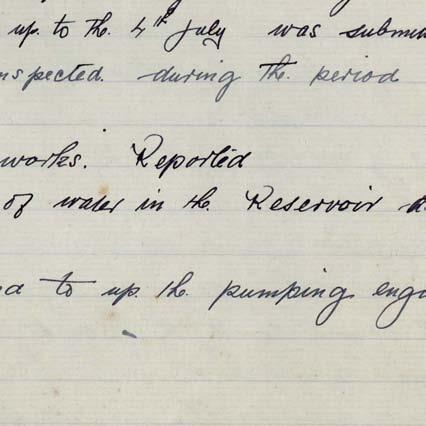 up to the 4th July was submi
nspected during the period
works. Reported
of water in the Reservoir
to up the pumping eng